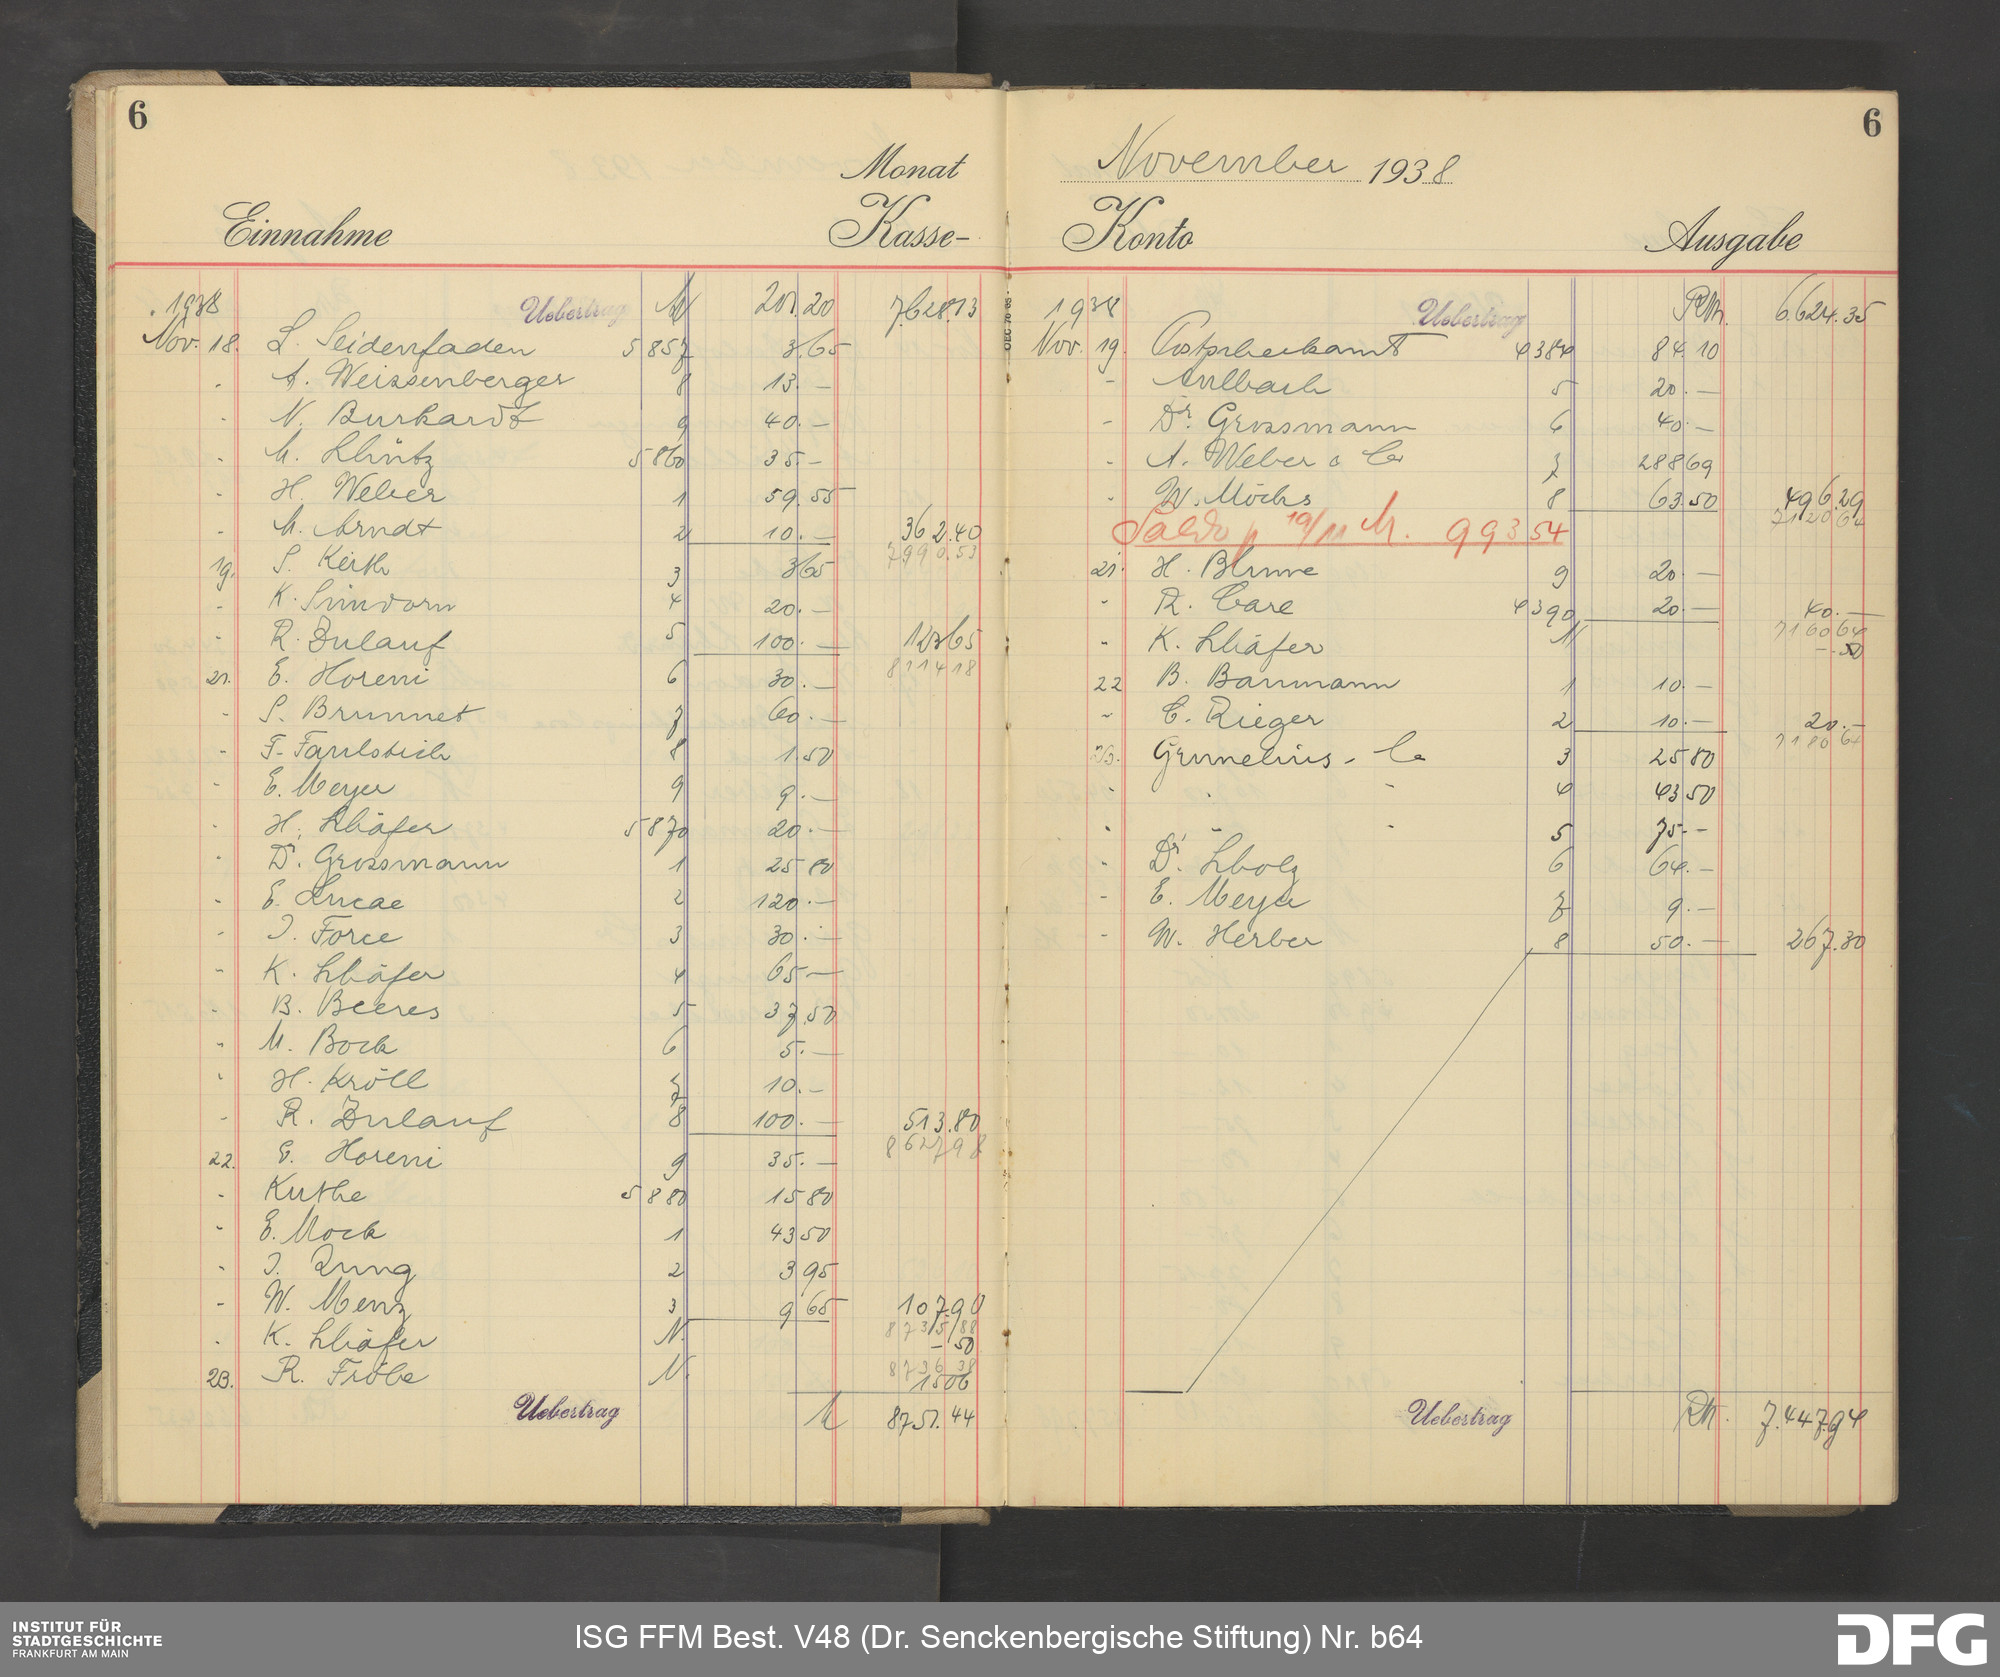 6
Monat
Einnahme Kasse-
1938 Uebertrag M 201.20 7.628.13
Nov. 18. L. Seidenfaden 5857 3.65
- A. Weissenberger 8 13.—
- N. Burkardt 9 40.—
- M. Schütz 5860 35.—
- H. Weber 1 59.55
- M. Arndt 2 10.— 362.40
7990.53
19. S. Keith 3 3.65
- K. 4 20.—
- R. Zulauf 5 100.— 123.65
8114.18
21. E. Horeni 6 30.—
- S. Brunnet 7 60.—
- F. Faulstich 8 1.50
- E. Meyer 9 9.—
- H. Schäfer 5870 20.—
- Dr. Grossmann 1 25.80
- E. Lucae 2 120.—
- J. Force 3 30.—
- K. Schäfer 4 65.—
- B. Beeres 5 37.50
- M. Bock 6 5.—
- H. Kröll 7 10.—
- R. Zulauf 8 100.— 513.80
8627.98
22. E. Horeni 9 35.—
- Kuthe 5880 15.80
- E. Mock 1 43.50
- J. Rung 2 3.95
- W. Menz 3 9.65 107.90
8735.88
- K. Schäfer N. —.50
8736.38
23. R. Fröbe N. 15.06
Uebertrag M 8751.44
6
November 1938
Konto Ausgabe
1938 Uebertrag RM. 6.624.35
Nov. 19. Postscheckamt 4384 84.10
- Aulbach 5 20.—
- Dr. Grossmann 6 40.—
- A. Weber & Co 7 288.69
- W. Möchs 8 63.50 496.29
7120.64
Saldo p 19/11 M. 993.54
21. H. Blume 9 20.—
- R. Care 4390 20.— 40.—
7160.64
- K. Schäfer N —.50
22 B. Baumann 1 10.—
- C. Rieger 2 10.— 20.—
7180.64
23. Grunelius & Co 3 25.80
- - - 4 43.50
- - - 5 75.—
- Dr. Scholz 6 64.—
- E. Meyer 7 9.—
- W. Herber 8 50.— 267.30
Uebertrag RM. 7.447.94
INSTITUT FÜR
STADTGESCHICHTE
FRANKFURT AM MAIN
ISG FFM Best. V48 (Dr. Senckenbergische Stiftung) Nr. b64
DFG